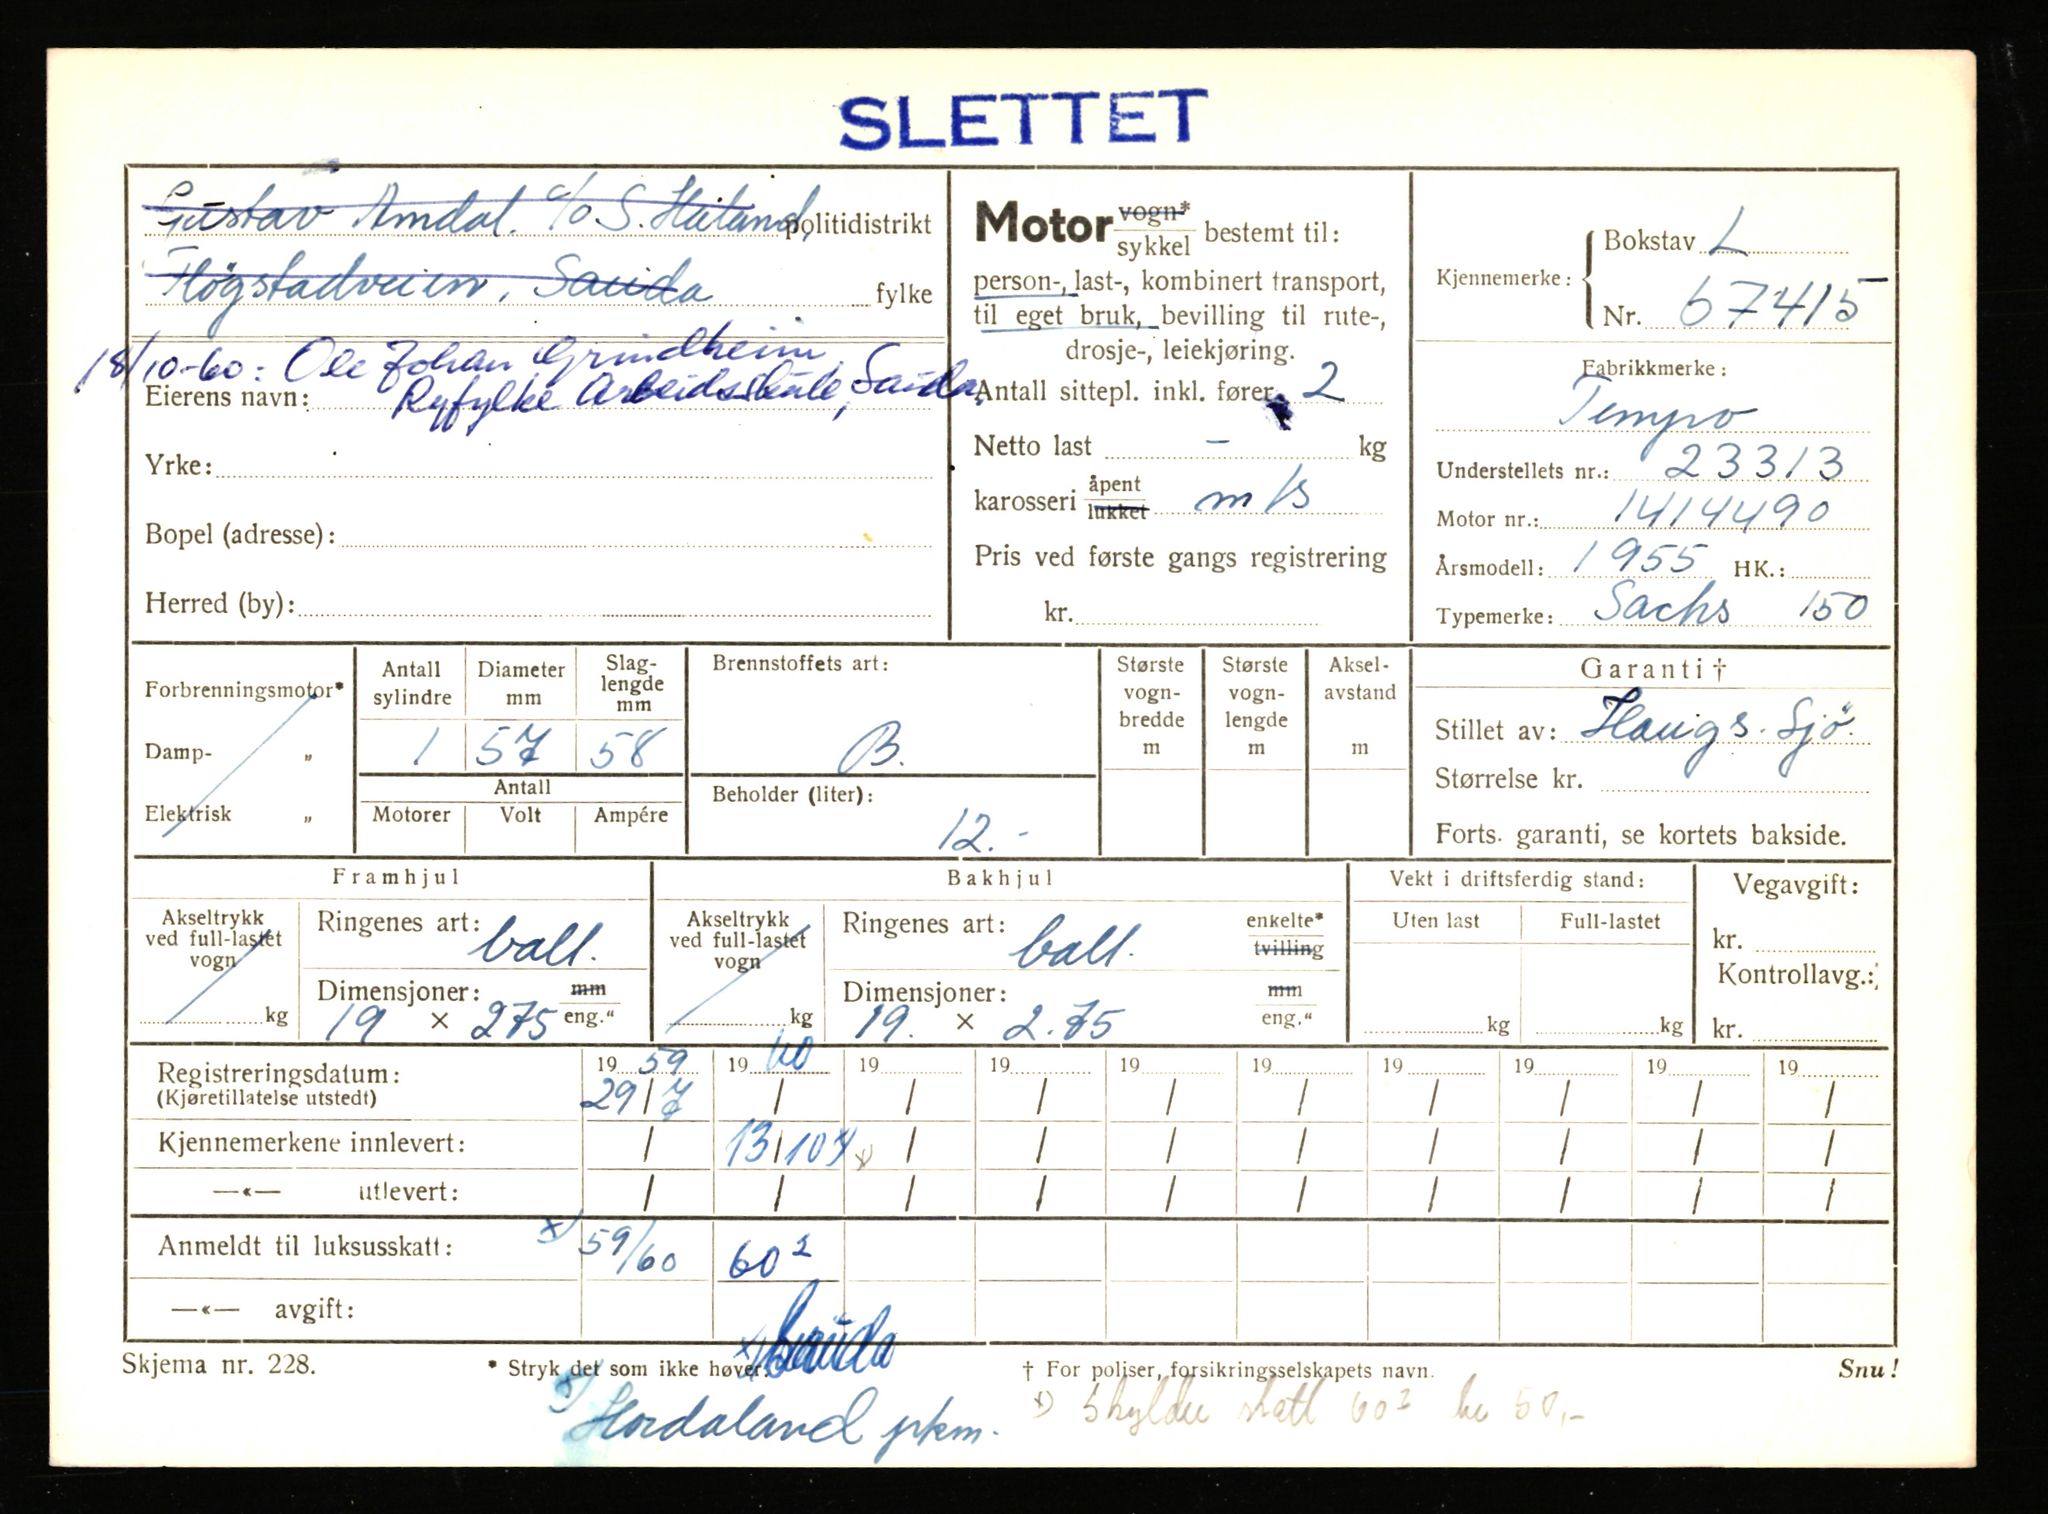 SLETTET
Gustav Amdal. c/o S. Heiland, politidistrikt
Høgstadveien, Sauda fylke
18/10-60: Ole Johan Grindheim,
Eierens navn: Ryfylke Arbeidsskule, Sauda.
Yrke:
Bopel (adresse):
Herred (by):
Motor vogn* sykkel bestemt til:
person-, last-, kombinert transport,
til eget bruk, bevilling til rute-,
drosje-, leiekjøring.
Antall sittepl. inkl. fører 2
Netto last - kg
karosseri åpent lukket m/s
Pris ved første gangs registrering
kr.
Kjennemerke: Bokstav L
Nr. 67415
Fabrikkmerke:
Tempo
Understellets nr.: 23313
Motor nr.: 1414490
Årsmodell: 1955 HK.:
Typemerke: Sachs 150
Forbrenningsmotor*
Damp- „
Elektrisk „
Antall sylindre Diameter mm Slag-lengde mm
1 57 58
Antall
Motorer Volt Ampére
Brennstoffets art:
B.
Beholder (liter):
12.-
Største vogn-bredde m Største vogn-lengde m Aksel-avstand m
Garanti †
Stillet av: Haugs. Sjø.
Størrelse kr.
Forts. garanti, se kortets bakside.
Framhjul
Akseltrykk ved full-lastet vogn kg
Ringenes art: ball.
Dimensjoner: 19 × 275 mm eng."
Bakhjul
Akseltrykk ved full-lastet vogn kg
Ringenes art: ball. enkelte* tvilling
Dimensjoner: 19. × 2.75 mm eng."
Vekt i driftsferdig stand:
Uten last Full-lastet
kg kg
Vegavgift:
kr.
Kontrollavg.:
kr.
Registreringsdatum: 19 59 19 60 19 19 19 19 19 19 19 19
(Kjøretillatelse utstedt) 29/7 / / / / / / / / /
Kjennemerkene innlevert: / 13/10 x) x) / / / / / / / /
—«— utlevert: / / / / / / / / / /
Anmeldt til luksusskatt: x) 59/60 60²
—«— avgift:
x) Sauda
Skjema nr. 228. * Stryk det som ikke høver. † For poliser, forsikringsselskapets navn. Snu!
x) Hordaland pkm. x) Skylder skatt 60² kr 50,-